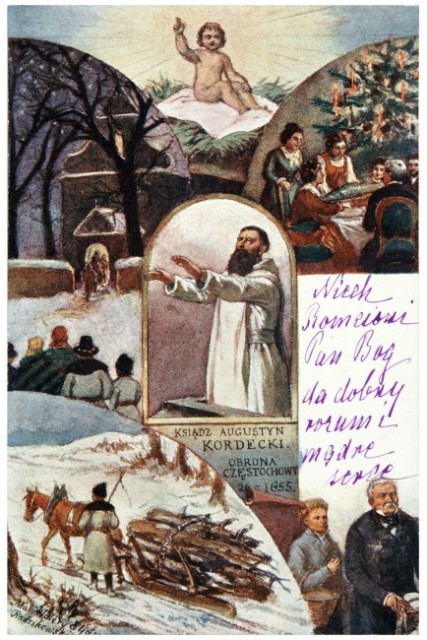 Niech
Romciowi
Pan Bóg
da dobry
rozum i
mądre
serce
KSIĄDZ AUGUSTYN
KORDECKI.
OBRONA
CZĘSTOCHOWY
26 – 1655.